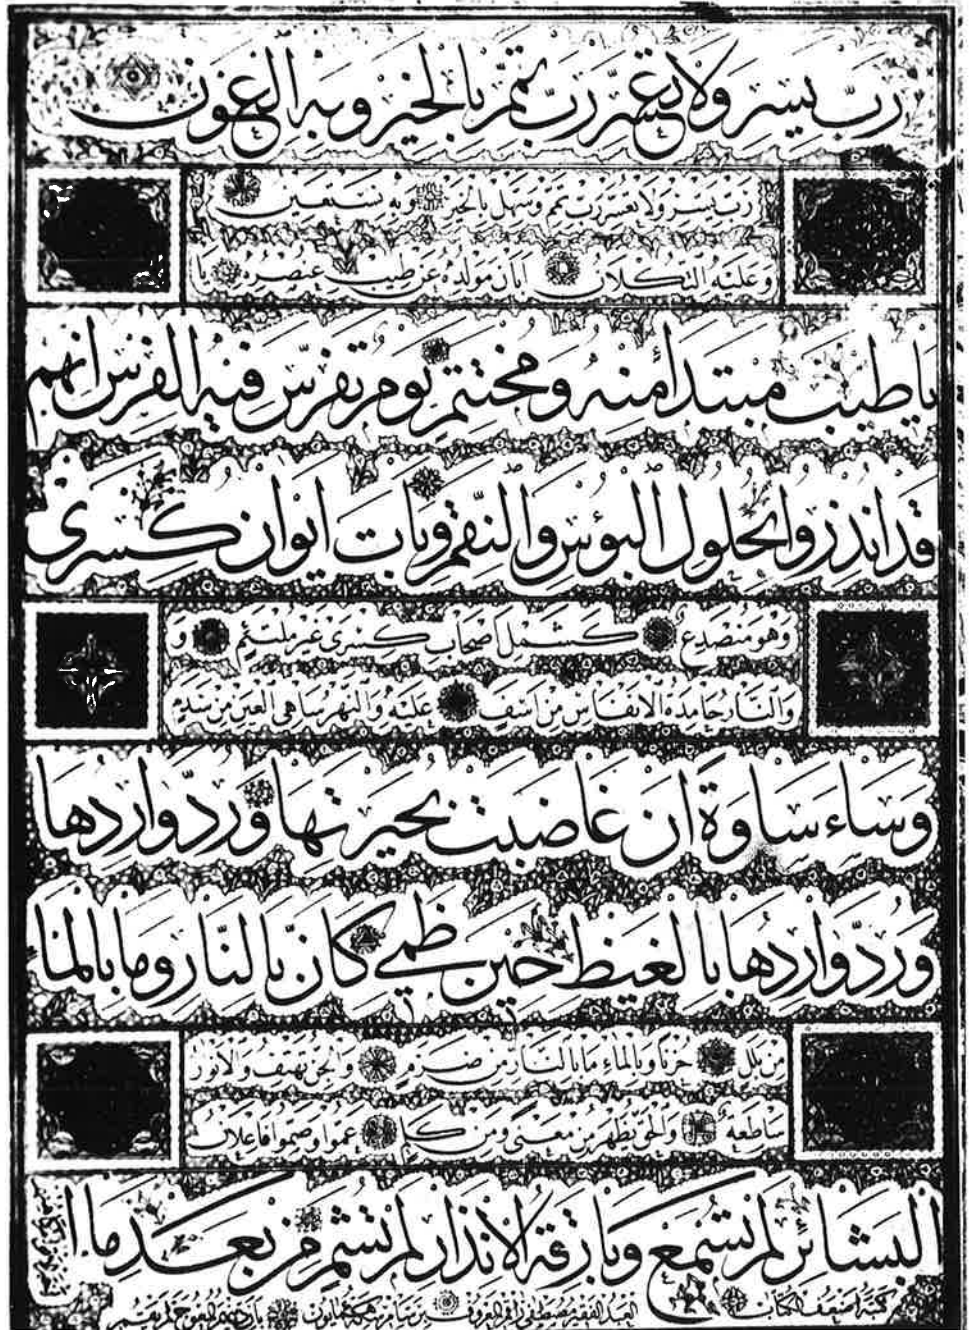 رب يسر ولا تعسر رب تمم بالخير وبه العون
رب يسر ولا تعسر رب تمم وسهل بالخير وبه نستعين
وعليه التكلان ابان مولده عن طيب عنصره يا
يا طيب مبتدأ منه ومختتم يوم تفرس فيه الفرس انهم
قد انذروا بحلول البؤس والنقم وبات ايوان كسرى
وهو منصدع كشمل اصحاب كسرى غير ملتئم و
والنار خامدة الانفاس من اسف عليه والنهر ساهي العين من سدم
وساء ساوة ان غاضت بحيرتها ورد واردها
ورد واردها بالغيظ حين ظمي كان بالنار ما بالما
من بلل حزنا وبالماء ما بالنار من ضرم والجن تهتف والانوار
ساطعة والحق يظهر من معنى ومن كلم عموا وصموا فاعلان
البشائر لم تسمع وبارقة الانذار لم تشم من بعد ما ا
كتبه اضعف الكتاب العبد الفقير مصطفى راقم